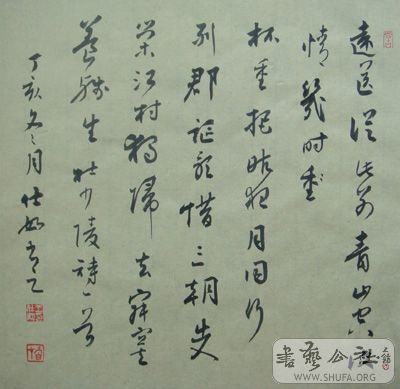 遠送從此別青山空復
情幾時
杯重把昨夜月同行
列郡謳歌惜三朝出入
榮江村獨歸處寂寞
養殘生杜少陵詩一首
丁亥冬月仕書之
書藝公社
WWW.SHUFA.ORG